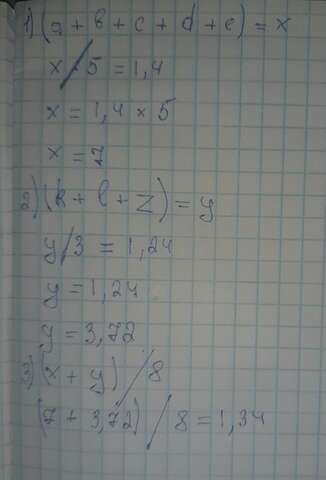 1) (a + b + c + d + e) = x
x / 5 = 1,4
x = 1,4 × 5
x = 7
2) (k + l + z) = y
y / 3 = 1,24
y = 1,24
y = 3,72
3) (x + y) / 8
(7 + 3,72) / 8 = 1,34